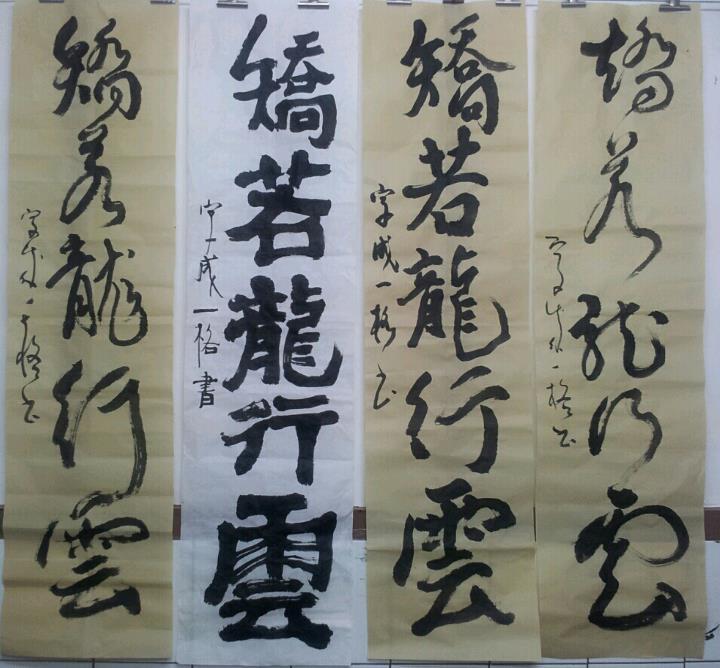 矯若龍行雲
一格书
矯若龍行雲
字成一格书
矯若龍行雲
字成一格書
矯若龍行雲
一格书